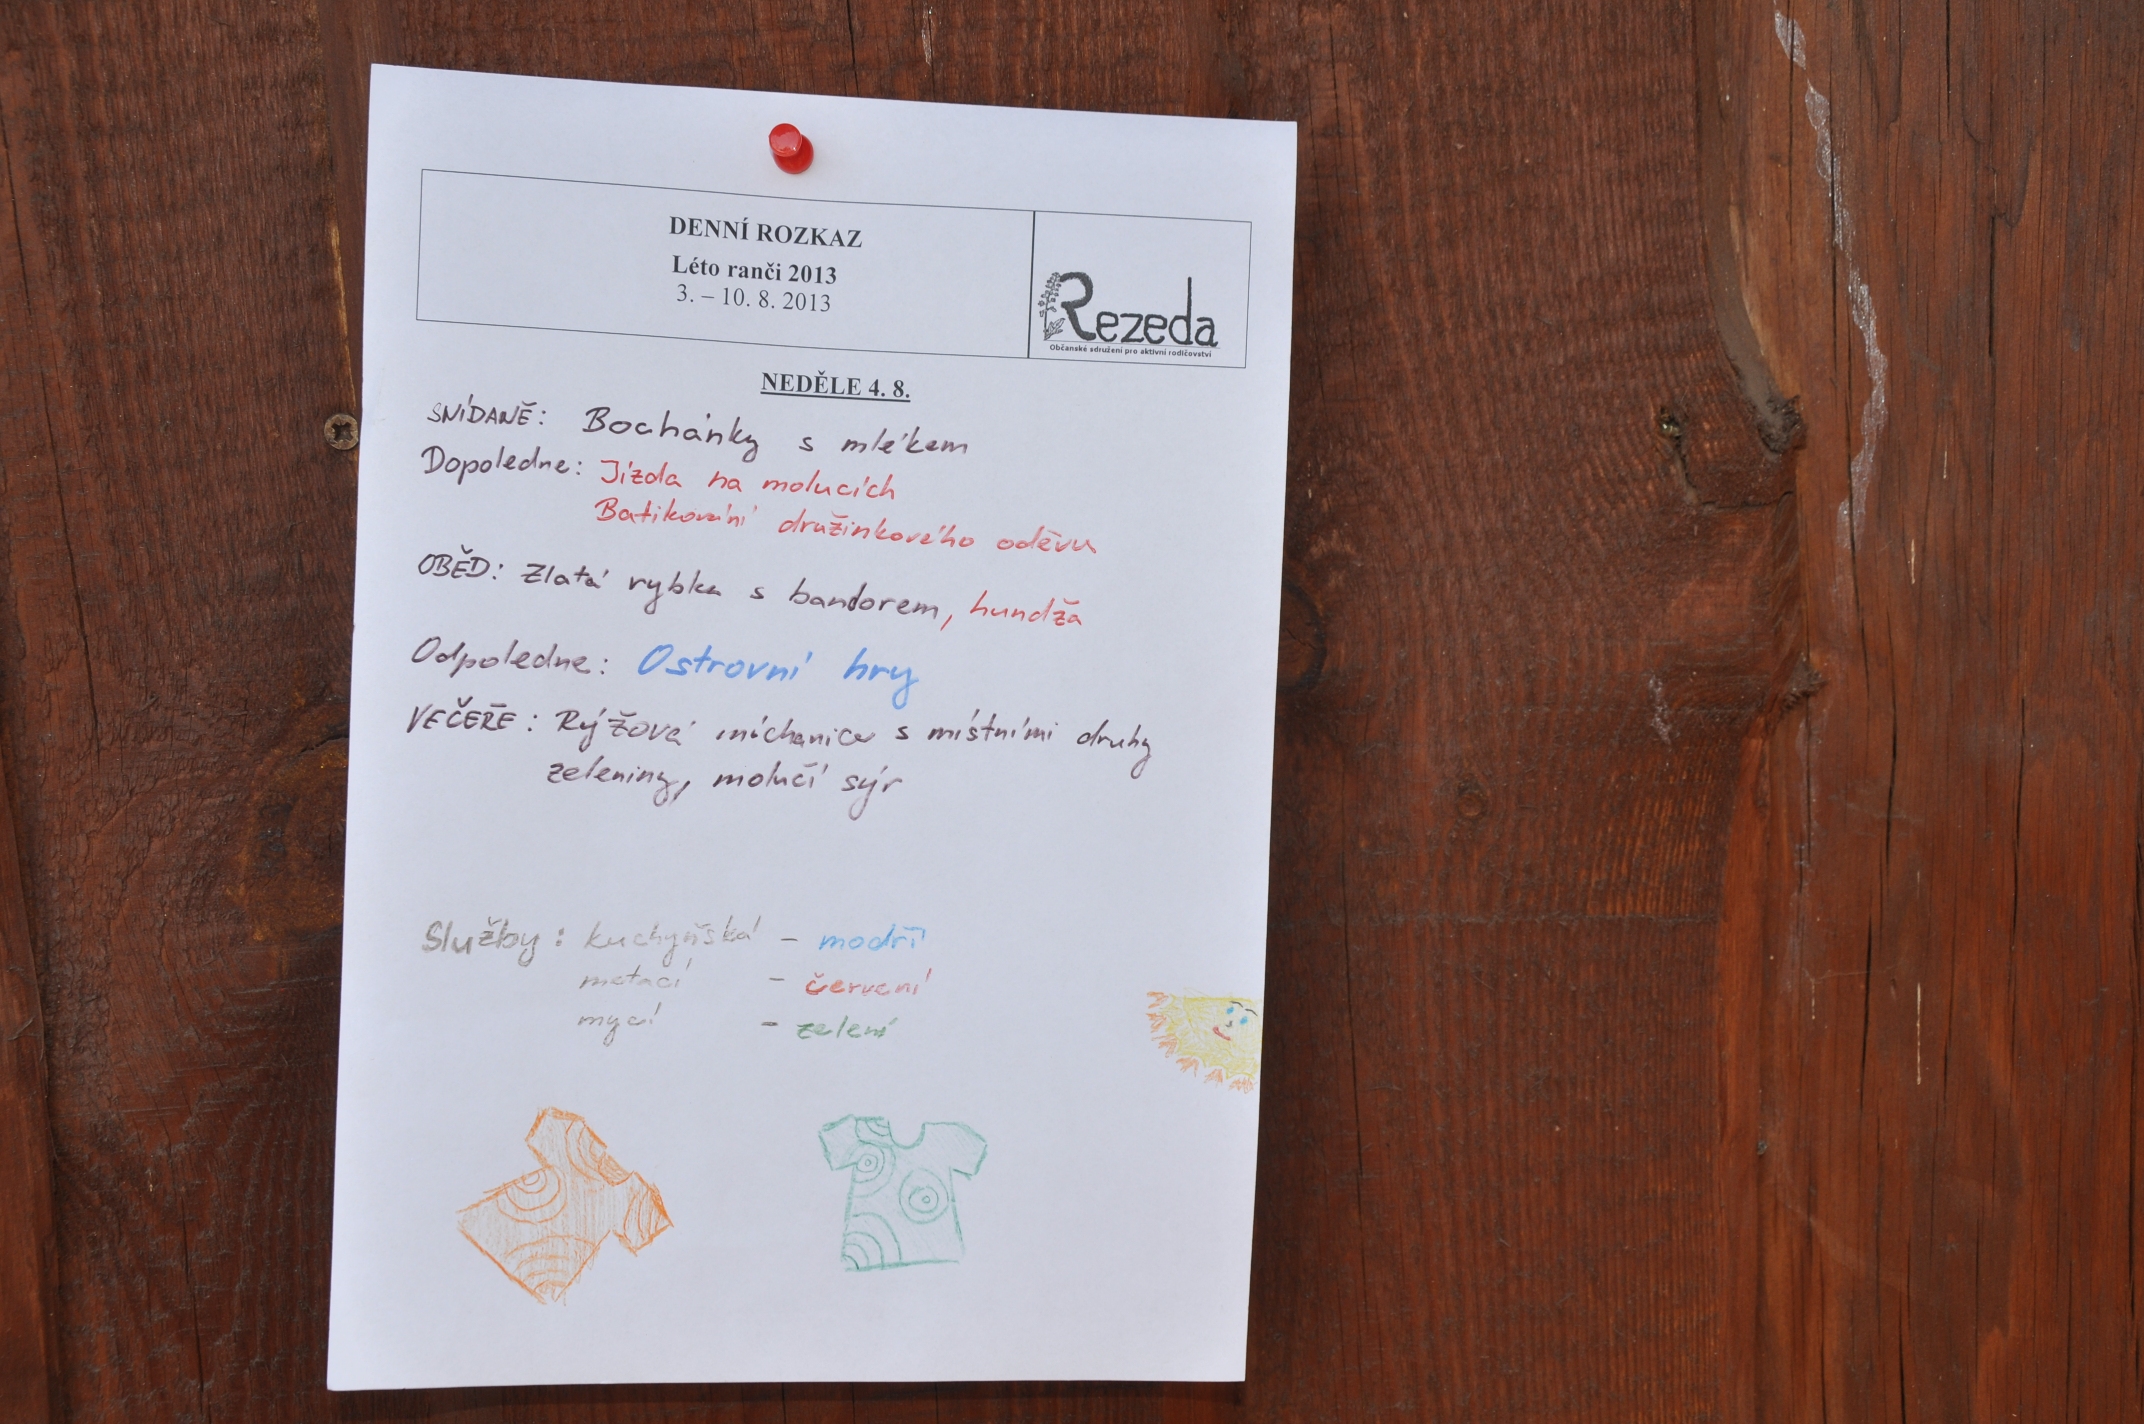 DENNÍ ROZKAZ
Léto ranči 2013
3. – 10. 8. 2013
Rezeda
Občanské sdružení pro aktivní rodičovství
NEDĚLE 4. 8.
SNÍDANĚ: Bochánky s mlékem
Dopoledne: Jízda na molucích
Batikování družinkového oděvu
OBĚD: Zlatá rybka s bandorem, hundža
Odpoledne: Ostrovní hry
VEČEŘE: Rýžová míchanice s místními druhy
zeleniny, molučí sýr
Služby: kuchyňská - modří
metací - červení
mycí - zelení